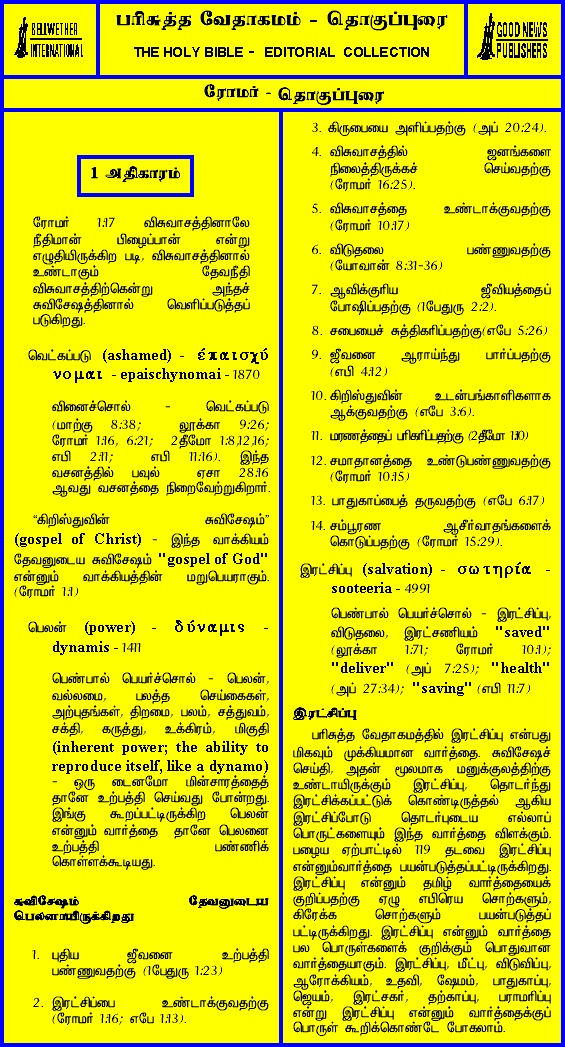 BELLWETHER
INTERNATIONAL
பரிசுத்த வேதாகமம் - தொகுப்புரை
THE HOLY BIBLE - EDITORIAL COLLECTION
GOOD NEWS
PUBLISHERS
ரோமர் - தொகுப்புரை
1 அதிகாரம்
ரோமர் 1:17 விசுவாசத்தினாலே
நீதிமான் பிழைப்பான் என்று
எழுதியிருக்கிற படி, விசுவாசத்தினால்
உண்டாகும் தேவநீதி
விசுவாசத்திற்கென்று அந்தச்
சுவிசேஷத்தினால் வெளிப்படுத்தப்
படுகிறது.
வெட்கப்படு (ashamed) - έπαισχύ
νομαι - epaischynomai - 1870
வினைச்சொல் - வெட்கப்படு
(மாற்கு 8:38; லூக்கா 9:26;
ரோமர் 1:16, 6:21; 2தீமோ 1:8,12,16;
எபி 2:11; எபி 11:16). இந்த
வசனத்தில் பவுல் ஏசா 28:16
ஆவது வசனத்தை நிறைவேற்றுகிறார்.
“கிறிஸ்துவின் சுவிசேஷம்”
(gospel of Christ) - இந்த வாக்கியம்
தேவனுடைய சுவிசேஷம் "gospel of God"
என்னும் வாக்கியத்தின் மறுபெயராகும்.
(ரோமர் 1:1)
பெலன் (power) - δύναμις -
dynamis - 1411
பெண்பால் பெயர்ச்சொல் - பெலன்,
வல்லமை, பலத்த செய்கைகள்,
அற்புதங்கள், திறமை, பலம், சத்துவம்,
சக்தி, கருத்து, உக்கிரம், மிகுதி
(inherent power; the ability to
reproduce itself, like a dynamo)
- ஒரு டைனமோ மின்சாரத்தைத்
தானே உற்பத்தி செய்வது போன்றது.
இங்கு கூறப்பட்டிருக்கிற பெலன்
என்னும் வார்த்தை தானே பெலனை
உற்பத்தி பண்ணிக்
கொள்ளக்கூடியது.
சுவிசேஷம் தேவனுடைய
பெலனாயிருக்கிறது
1. புதிய ஜீவனை உற்பத்தி
பண்ணுவதற்கு (1பேதுரு 1:23)
2. இரட்சிப்பை உண்டாக்குவதற்கு
(ரோமர் 1:16; எபே 1:13).
3. கிருபையை அளிப்பதற்கு (அப் 20:24).
4. விசுவாசத்தில் ஜனங்களை
நிலைத்திருக்கச் செய்வதற்கு
(ரோமர் 16:25).
5. விசுவாசத்தை உண்டாக்குவதற்கு
(ரோமர் 10:17)
6. விடுதலை பண்ணுவதற்கு
(யோவான் 8:31-36)
7. ஆவிக்குரிய ஜீவியத்தைப்
போஷிப்பதற்கு (1பேதுரு 2:2).
8. சபையைச் சுத்திகரிப்பதற்கு(எபே 5:26)
9. ஜீவனை ஆராய்ந்து பார்ப்பதற்கு
(எபி 4:12)
10. கிறிஸ்துவின் உடன்பங்காளிகளாக
ஆக்குவதற்கு (எபே 3:6).
11. மரணத்தைப் பரிகரிப்பதற்கு (2தீமோ 1:10)
12. சமாதானத்தை உண்டுபண்ணுவதற்கு
(ரோமர் 10:15)
13. பாதுகாப்பைத் தருவதற்கு (எபே 6:17)
14. சம்பூரண ஆசீர்வாதங்களைக்
கொடுப்பதற்கு (ரோமர் 15:29).
இரட்சிப்பு (salvation) - σωτηρία -
sooteeria - 4991
பெண்பால் பெயர்ச்சொல் - இரட்சிப்பு,
விடுதலை, இரட்சணியம் "saved"
(லூக்கா 1:71; ரோமர் 10:1);
"deliver" (அப் 7:25); "health"
(அப் 27:34); "saving" (எபி 11:7)
இரட்சிப்பு
பரிசுத்த வேதாகமத்தில் இரட்சிப்பு என்பது
மிகவும் முக்கியமான வார்த்தை. சுவிசேஷச்
செய்தி, அதன் மூலமாக மனுக்குலத்திற்கு
உண்டாயிருக்கும் இரட்சிப்பு, தொடர்ந்து
இரட்சிக்கப்பட்டுக் கொண்டிருத்தல் ஆகிய
இரட்சிப்போடு தொடர்புடைய எல்லாப்
பொருட்களையும் இந்த வார்த்தை விளக்கும்.
பழைய ஏற்பாட்டில் 119 தடவை இரட்சிப்பு
என்னும்வார்த்தை பயன்படுத்தப்பட்டிருக்கிறது.
இரட்சிப்பு என்னும் தமிழ் வார்த்தையைக்
குறிப்பதற்கு ஏழு எபிரெய சொற்களும்,
கிரேக்க சொற்களும் பயன்படுத்தப்
பட்டிருக்கிறது. இரட்சிப்பு என்னும் வார்த்தை
பல பொருள்களைக் குறிக்கும் பொதுவான
வார்த்தையாகும். இரட்சிப்பு, மீட்பு, விடுவிப்பு,
ஆரோக்கியம், உதவி, ஷேமம், பாதுகாப்பு,
ஜெயம், இரட்சகர், தற்காப்பு, பராமரிப்பு
என்று இரட்சிப்பு என்னும் வார்த்தைக்குப்
பொருள் கூறிக்கொண்டே போகலாம்.